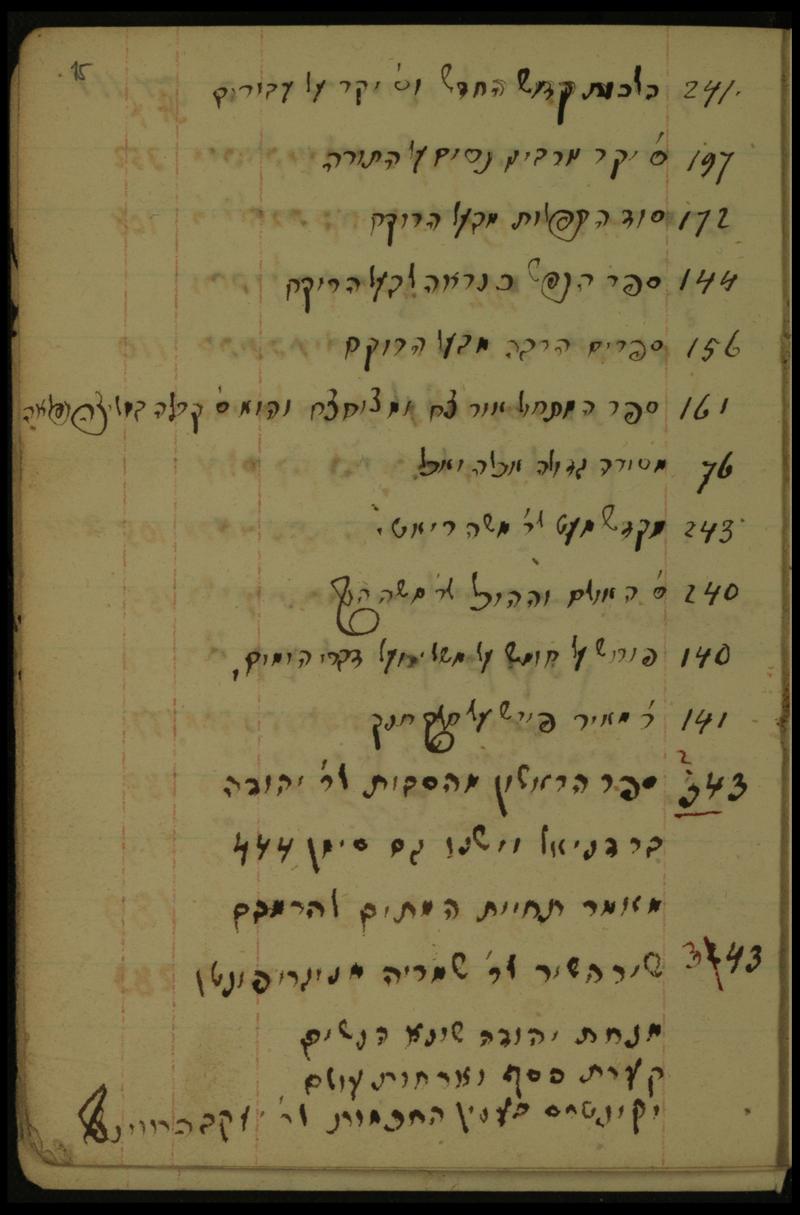 15
241 הלכות קדוש החדש וס׳ יקר על עבירות
197 ס׳ יקר מרבים נסים על התורה
172 סוד התפלות מבעל הרוקח
144 ספר הנפש כנראה לבעל הרוקח
156 ספרים הרבה מבעל הרוקח
161 ספר המתחיל אור צח ומצוחצח והוא ס׳ קבלה
76 מסורה גדולה אכלה ואכל
243 מקדש מעט לר׳ משה ריאטי
240 ס׳ האולם וההיכל לר׳ משה
140 פירוש על חומש על משלי ועל דברי הימים
141 ר׳ מאיר פירש על חנך
343 2 ספר הראשון מהסבות לר׳ יהודה
בר דניאל וישנו גם סימן 444
מאמר תחיית המתים להרמבם
3 43 שיר השיר לר׳ שמריה מניגריפונטי
מנחת יהודה שונא הנשים
קערת כסף וארחות עולם
יקונטרס בענין החכמות לר׳ יעקב